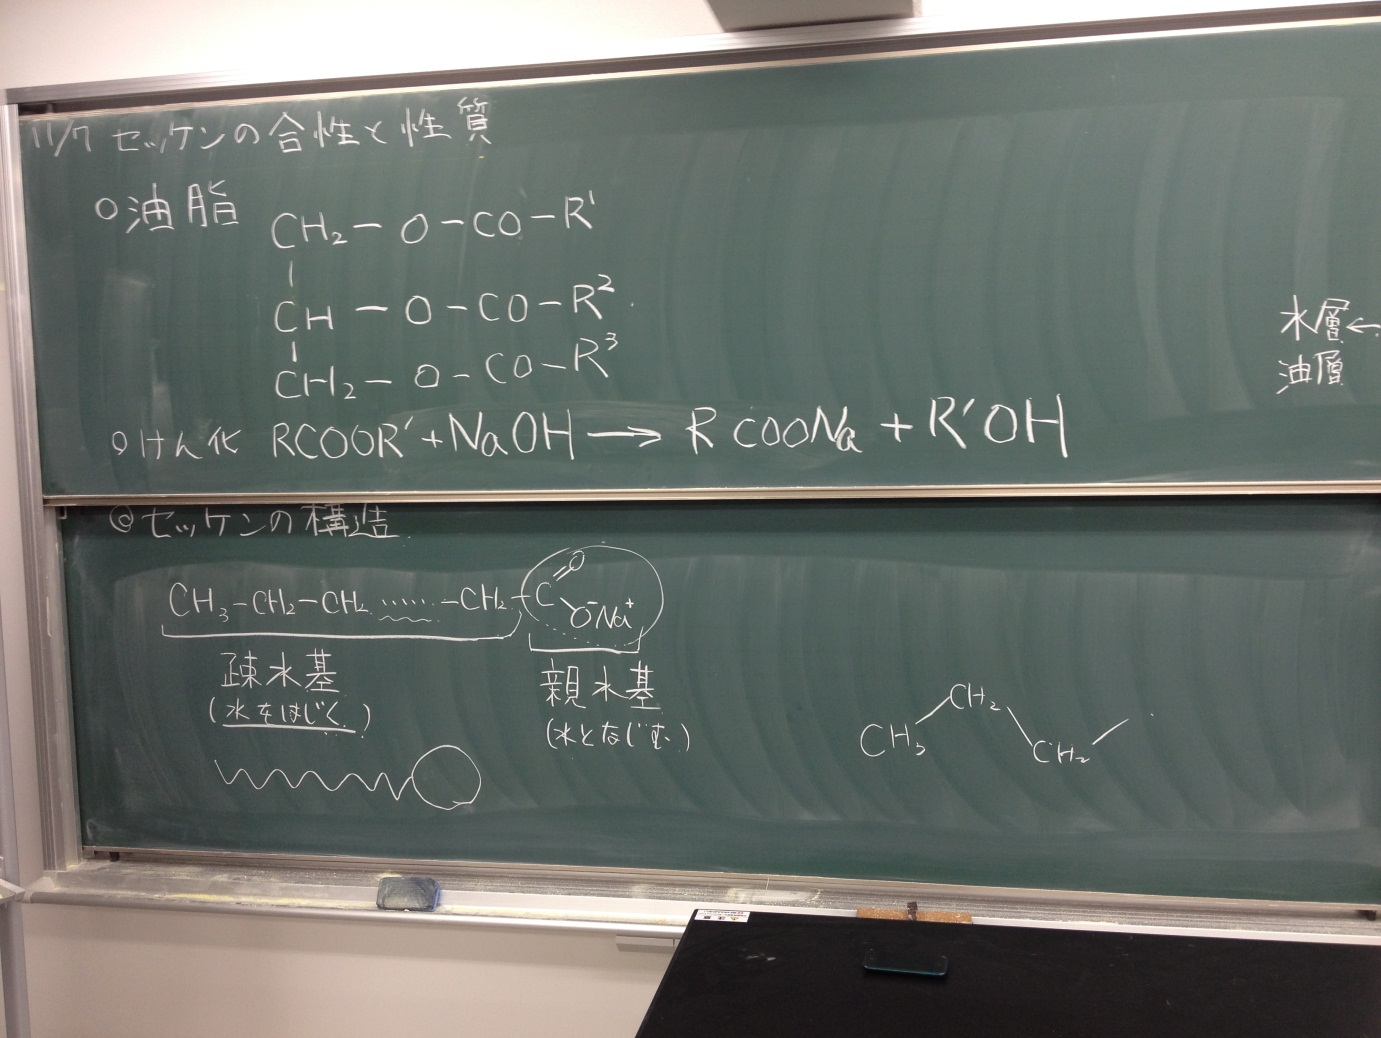 11/7 セッケンの合性と性質
○油脂
CH₂－O－CO－R¹
CH－O－CO－R²
CH₂－O－CO－R³
○けん化 RCOOR′+NaOH→RCOONa+R′OH
水層←
油層
◎セッケンの構造
CH₃－CH₂－CH₂……－CH₂－C=O O⁻Na⁺
疎水基
(水をはじく)
親水基
(水となじむ)
CH₃ CH₂ CH₂